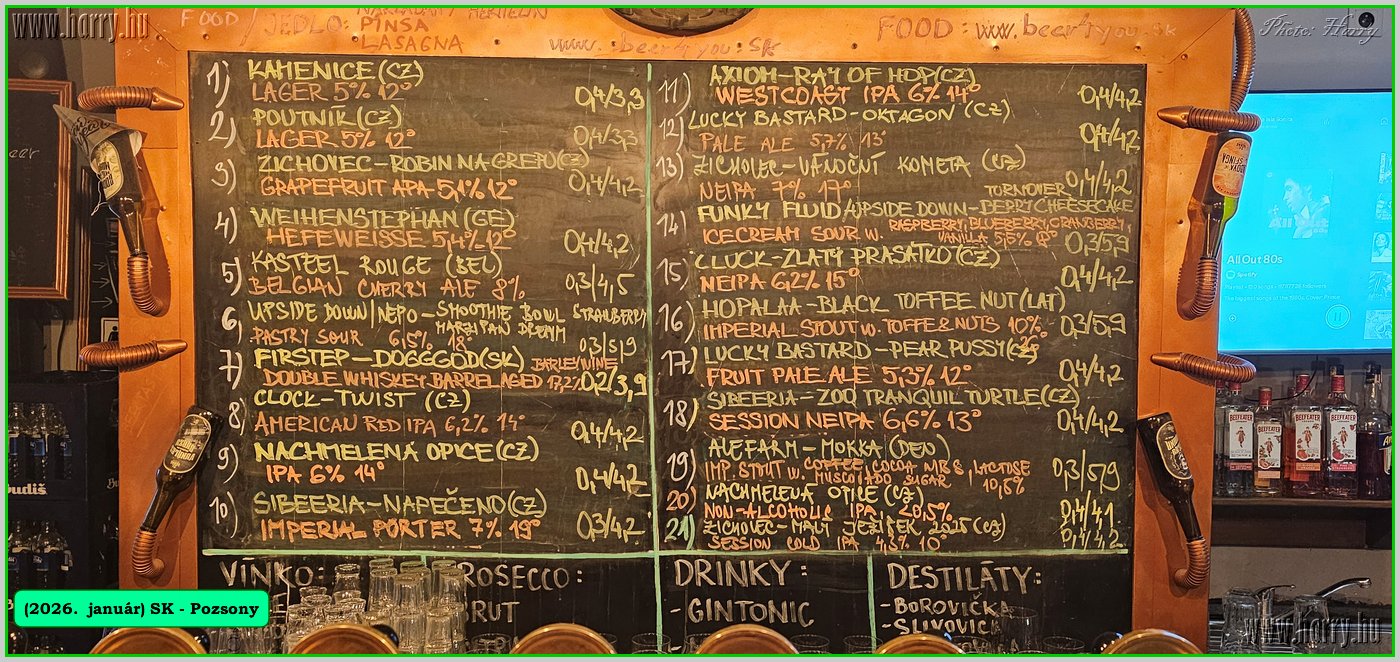 www.harry.hu
FOOD / JEDLO: PINSA
LASAGNA
www.beer4you.sk
FOOD: www.beer4you.sk
Photo: Harry
1) KAMENICE (CZ)
LAGER 5% 12° 0,4/3,3
2) POUTNÍK (CZ)
LAGER 5% 12° 0,4/3,3
3) ZICHOVEC-ROBIN NA GREPU (CZ)
GRAPEFRUIT APA 5,1% 12° 0,4/4,2
4) WEIHENSTEPHAN (GE)
HEFEWEISSE 5,4% 12° 0,4/4,2
5) KASTEEL ROUGE (BEL)
BELGIAN CHERRY ALE 8% 0,3/4,5
6) UPSIDE DOWN/NEPO-SMOOTHIE BOWL STRAWBERRY
MARZIPAN DREAM
PASTRY SOUR 6,5% 18° 0,3/5,9
7) FIRSTEP-DOGGGOD (SK) BARLEYWINE
DOUBLE WHISKEY BARREL AGED 17,2% 0,2/3,9
8) CLOCK-TWIST (CZ)
AMERICAN RED IPA 6,2% 14° 0,4/4,2
9) NACHMELENÁ OPICE (CZ)
IPA 6% 14° 0,4/4,2
10) SIBEERIA-NAPEČENO (CZ)
IMPERIAL PORTER 7% 19° 0,3/4,2
11) AXIOM-RAY OF HOP (CZ)
WESTCOAST IPA 6% 14° 0,4/4,2
12) LUCKY BASTARD-OKTAGON (CZ)
PALE ALE 5,7% 13° 0,4/4,2
13) ZICHOVEC-VÁNOČNÍ KOMETA (CZ)
NEIPA 7% 17° 0,4/4,2
TORNOVER
14) FUNKY FLUID/UPSIDE DOWN-BERRY CHEESECAKE
ICECREAM SOUR w. RASPBERRY, BLUEBERRY, CRANBERRY,
VANILA 5,5% 0,3/5,9
15) CLOCK-ZLATÝ PRASÁTKO (CZ)
NEIPA 6,2% 15° 0,4/4,2
16) HOPALAA-BLACK TOFFEE NUT (LAT)
IMPERIAL STOUT w. TOFFE & NUTS 10% 0,3/5,9
17) LUCKY BASTARD-PEAR PUSSY (CZ)
FRUIT PALE ALE 5,3% 12° 0,4/4,2
18) SIBEERIA-ZOO TRANQUIL TURTLE (CZ)
SESSION NEIPA 6,6% 13° 0,4/4,2
19) ALEFARM-MOKKA (DEN)
IMP. STOUT w. COFFEE, COCOA NIBS, LACTOSE
MUSCOVADO SUGAR 10,8% 0,3/5,9
20) NACHMELENÁ OPICE (CZ)
NON-ALCOHOLIC IPA, 20,5% 0,4/4,1
21) ZICHOVEC-MALÝ JEŽÍREK 2025 (CZ)
SESSION COLD IPA 4,3% 10° 0,4/4,2
VÍNKO:
PROSECCO:
BRUT
DRINKY:
-GINTONIC
DESTILÁTY:
-BOROVIČKA
-SLIVOVICA
All Out 80s
Spotify
BEEFEATER
BEEFEATER
BEEFEATER
BEEFEATER
budiš
(2026. január) SK - Pozsony
www.harry.hu